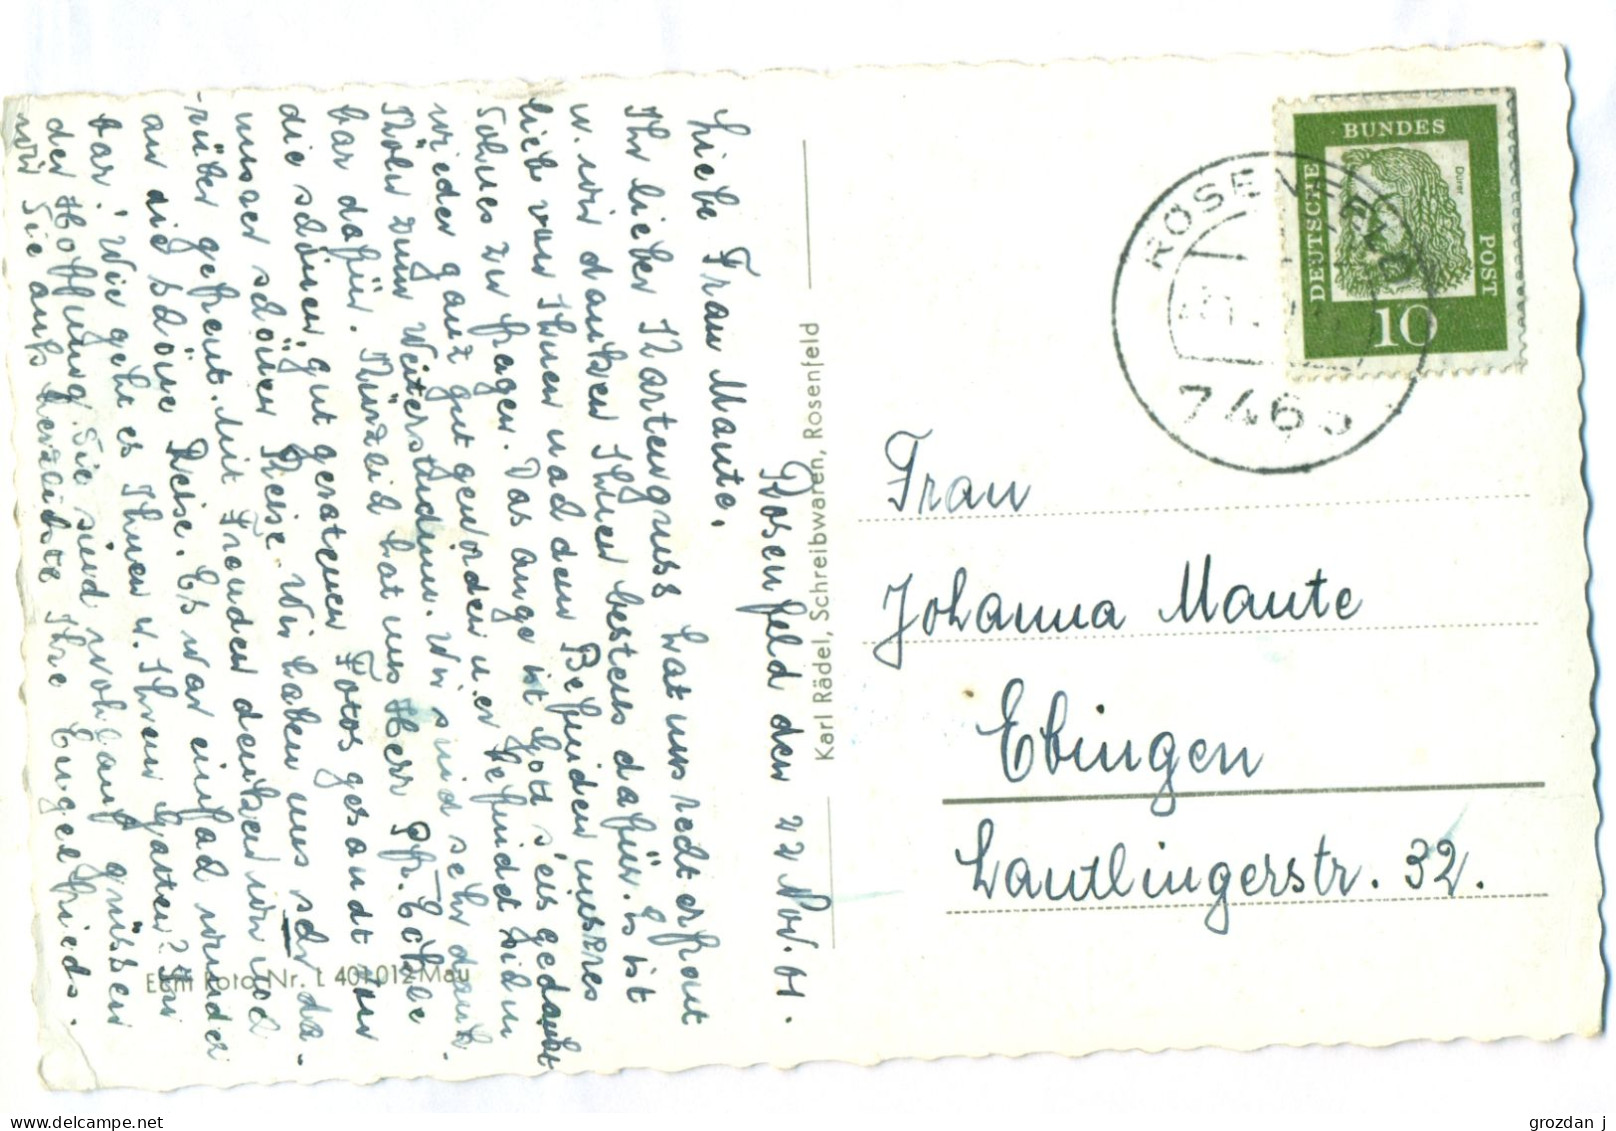 Rosenfeld den 22 Nov. 61.
Liebe Frau Maute.
Ihr lieber Kartengruss hat uns recht erfreut
u. wir danken Ihnen bestens dafür. Es ist
lieb von Ihnen nach dem Befinden unseres
Sohnes zu fragen. Das Auge ist Gott sei's gedankt
wieder ganz gut geworden u. er befindet sich im
zum Weiterstudium. Wir sind sehr dank-
bar dafür. Kürzlich hat uns Herr Pfr. Eckle
die schönen, gut geratenen Fotos gesandt von
unser schönen Reise. Wir haben uns sehr da-
rüber gefreut. Mit Freuden denken wir noch
an die schöne Reise. Es war einfach wunder
bar! Wie geht es Ihnen u. Ihrem Gatten? In
der Hoffnung, Sie sind wohlauf grüssen
wir Sie aufs herzlichste Ihre Engelfrieds.
Karl Rädel, Schreibwaren, Rosenfeld
Echt Foto Nr. L 401 012 Mau
DEUTSCHE BUNDES POST
Dürer
10
ROSENFELD
7463
Frau
Johanna Maute
Ebingen
Lautlingerstr. 32.
www.delcampe.net
grozdan j